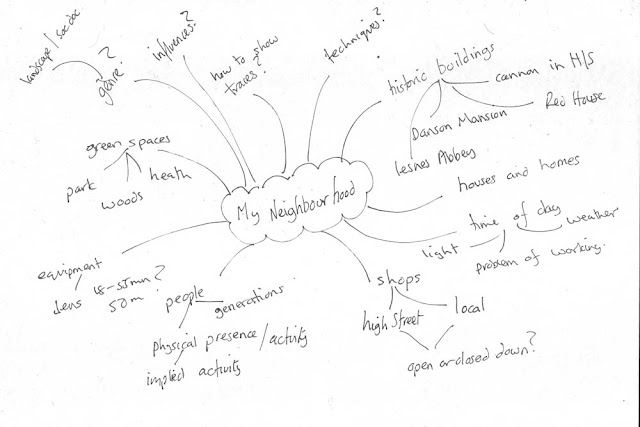 landscape / soc doc
genre?
influences?
how to show
traces?
techniques?
historic buildings
cannon in H/S
Red House
Danson Mansion
Lesnes Abbey
green spaces
park
woods
heath
My Neighbourhood
houses and homes
time of day
light
weather
problem of working.
equipment
lens 18-55mm?
50m
people
generations
physical presence / activity
implied activity
shops
high Street
local
open or closed down?